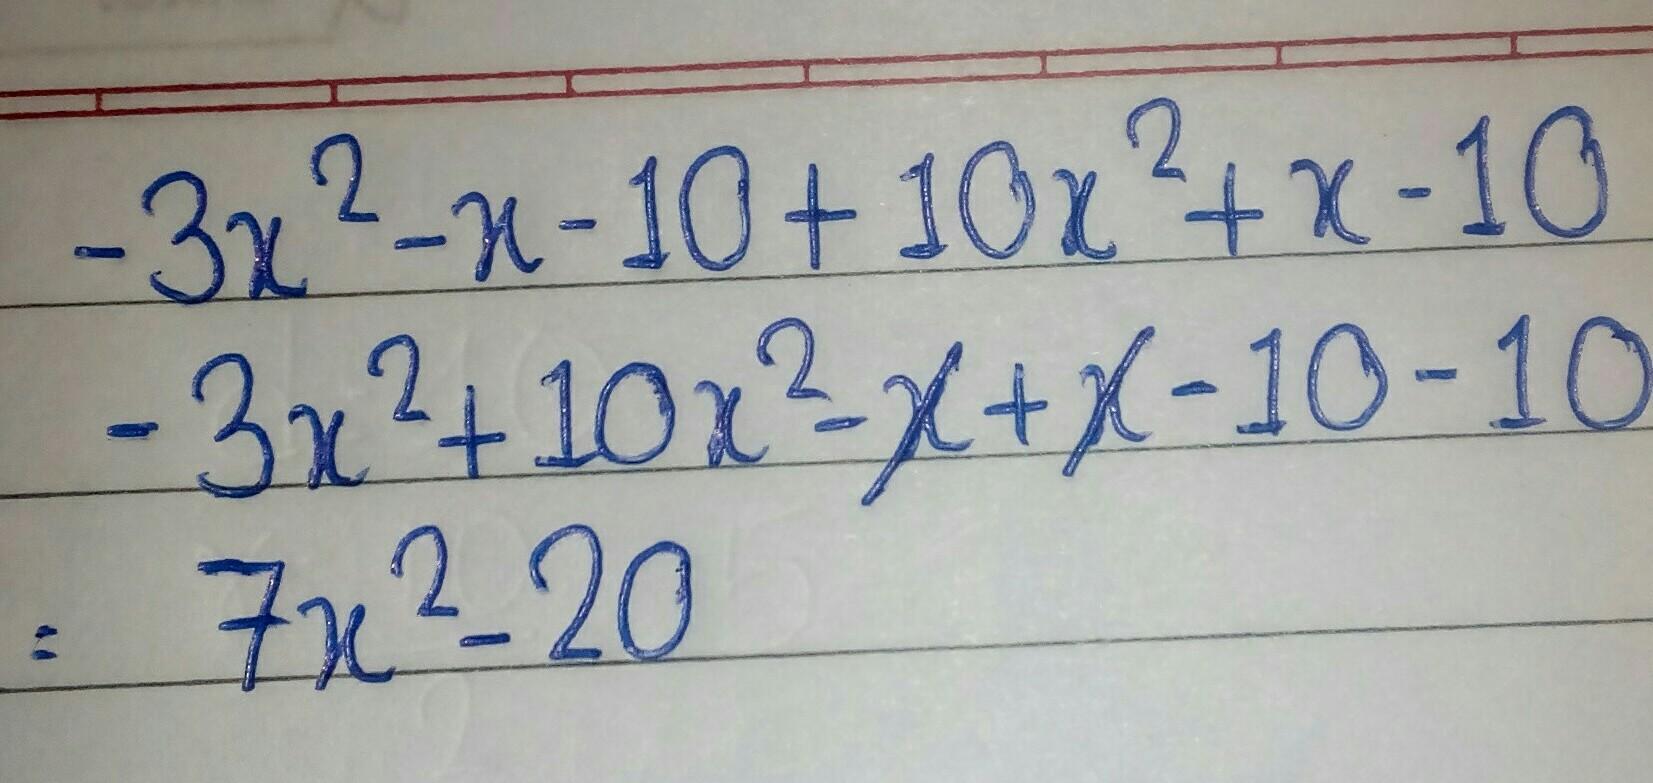 -3x²-x-10+10x²+x-10
-3x²+10x²-x+x-10-10
= 7x²-20